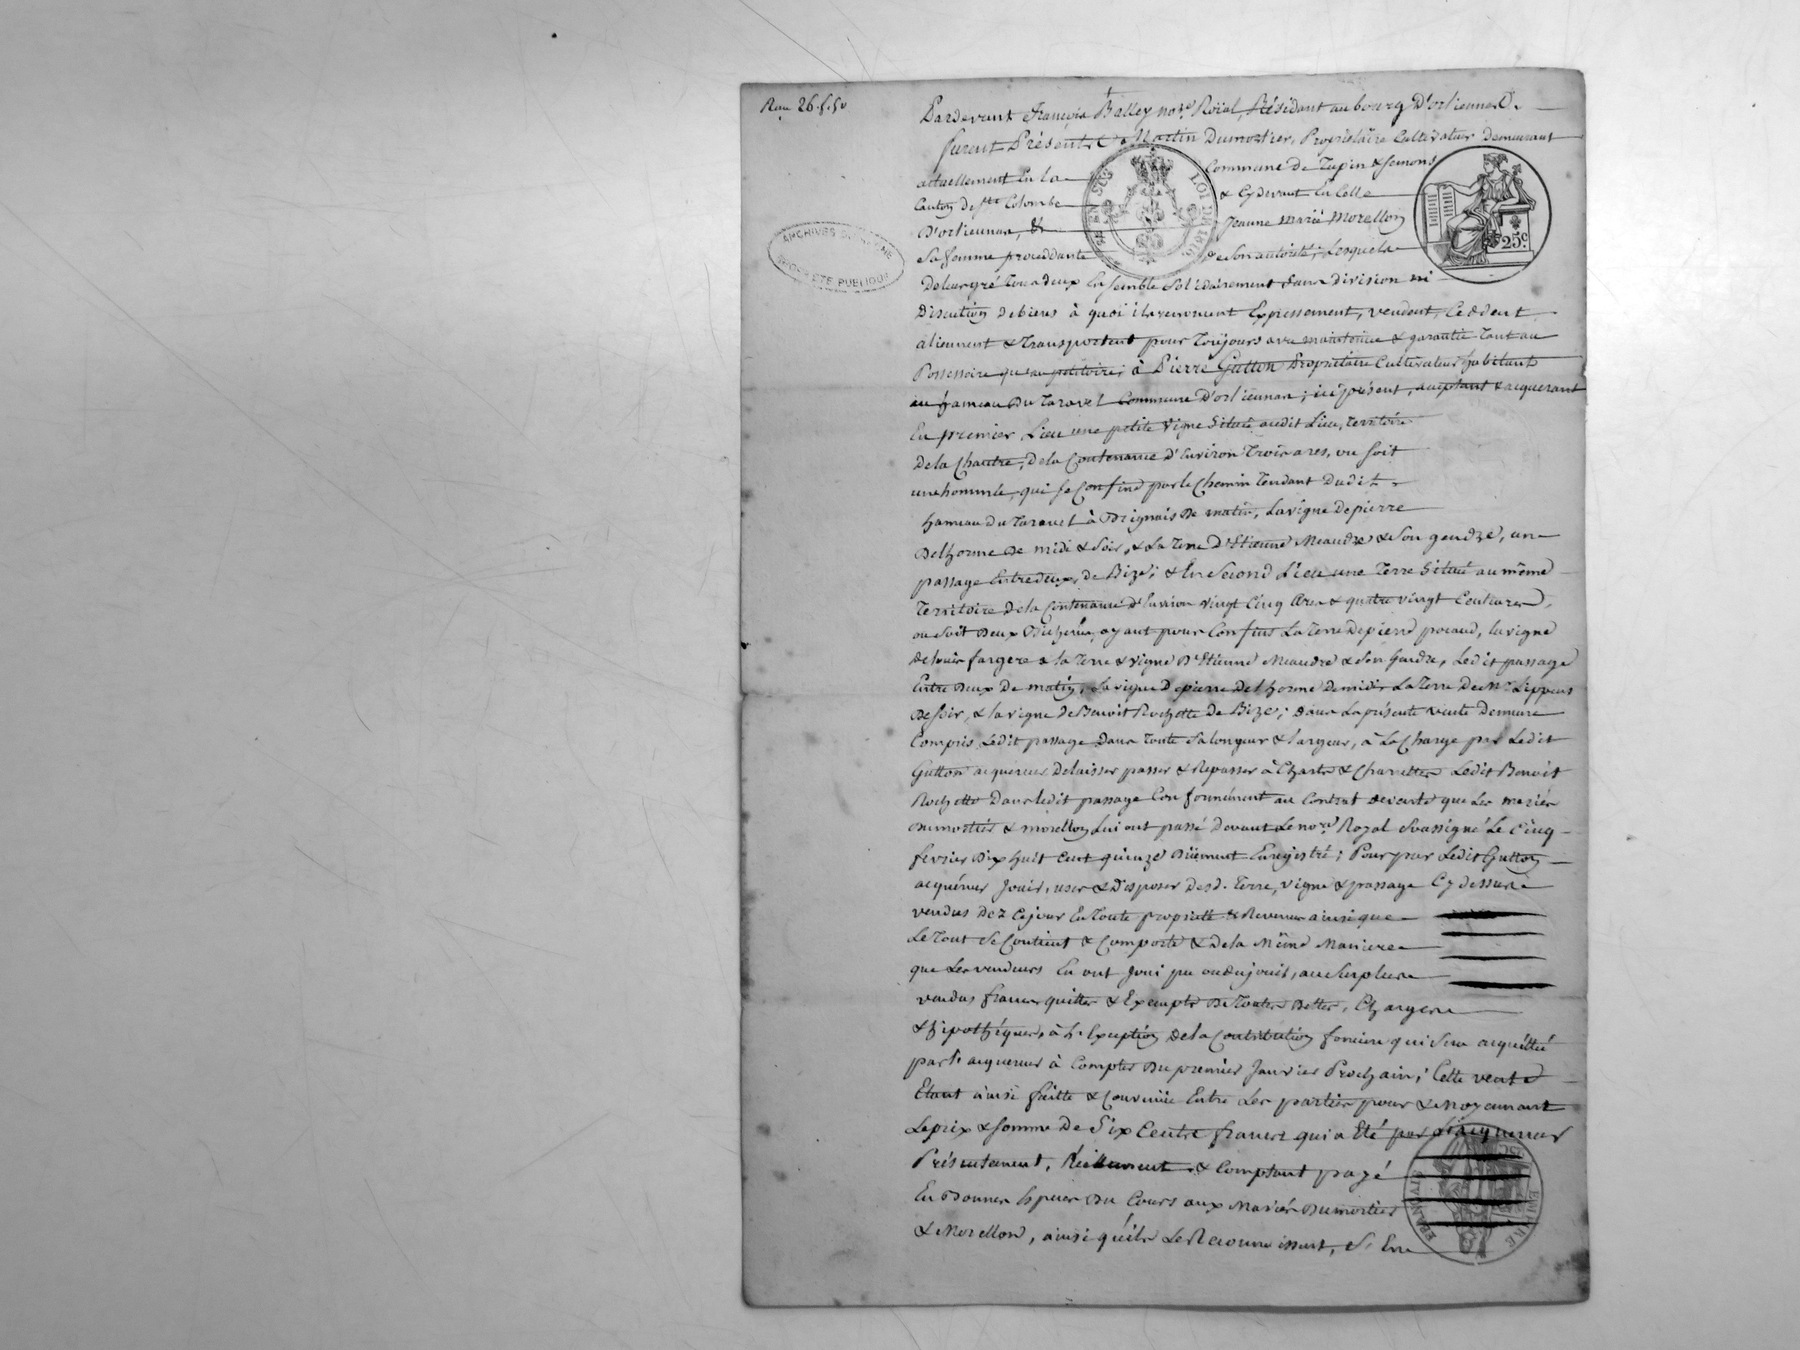 Pardevant françois Balley no.re Roïal, Résidant au bourg D'orliennas D.
furent Présents C.e Martin Dumortier, Propriétaire Cultivateur demeurant
actuellement En la Commune de Tupin & semons
Canton de S.te Colombe & Cydevant En Celle
D'orliennas, & Jeanne Marie Morellon
Sa femme procédante de Son autorité; Lesquels
De leur gré Tous deux Ensemble Solidairement sans division ni
Discution de biens à quoi ils renoncent Expressement, vendent, Cèddent
alienent & Transportent pour Toujours avec maintenue & garantie Tant au
Possessoire qu'au pétitoire; à Pierre Gutton Propriétaire Cultivateur habitant
au hameau du Taravel Commune D'orliennas; ici présent, acceptant & acquerant
En premier Lieu une petite vigne Située audit Lieu, Territoire
de la Chautre, de la Contenance d'Environ Trois ares, ou soit
une hommée, qui se Confine par le Chemin Tendant dudit
hameau du Taravel à Brignais de matin, la vigne de pierre
Delhorme de midi & soir, & la Terre d'Etienne Meaudre & son gendre, un
passage Entredeux, de Bize; & En Second Lieu une Terre Située au même
Territoire de la Contenance d'Environ vingt Cinq Ares & quatre vingt Centiares,
ou soit Deux Bicherées, ayant pour Confins La Terre de pierre pocaud, la vigne
de louis fargere & la Terre & vigne D'Etienne Meaudre & son Gendre, Ledit passage
Entre deux de matin, La vigne de pierre Delhorme de midi, La Terre de M.r Lippens
De soir, & la vigne de Benoit Rochette de Bize; dans La présente vente Demeure
Compris Ledit passage Dans Toute sa longueur & largeur, à La Charge par Ledit
Gutton acquéreur De laisser passer & Repasser à Chards & Charettes Ledit Benoit
Rochette Dans ledit passage Conformément au Contrat de vente que Les mariés
Dumortier & morellon Lui ont passé Devant Le no.re Royal soussigné Le Cinq
fevrier Dix huit Cent quinze Dûement Enregistré; Pour par Ledit Gutton
acquéreur Jouir, user & Disposer des d. Terre, vigne & passage Cy dessus
vendus dez Cejour En Toute propriété & Revenus ainsi que
Le Tout Se Contient & Comporte & de la Même Maniere
que Les vendeurs En ont Joui pu ou du jouir, au Surplus
vendus francs quittes & Exempts De Toutes Dettes, Charges
& hipothéques, à L'Exeption de la Contribution fonciere qui sera acquittée
par l'acquereur à Compter Du premier Janvier Prochain; Cette vente
Etant ainsi faitte & Convenüe Entre Les parties pour & Moyennant
Le prix & somme De Six Cents francs qui a Eté par L'acquereur
Présentement, Réellement & Comptant payé
En Bonnes Espèces Du Cours aux Mariés Dumortier
& Morellon, ainsi qu'ils Le Reconnoissent, S'En
25c.
ARCHIVES DU RHONE
PROPRIÉTÉ PUBLIQUE
LOI DE 1816
EMPIRE FRANÇAIS